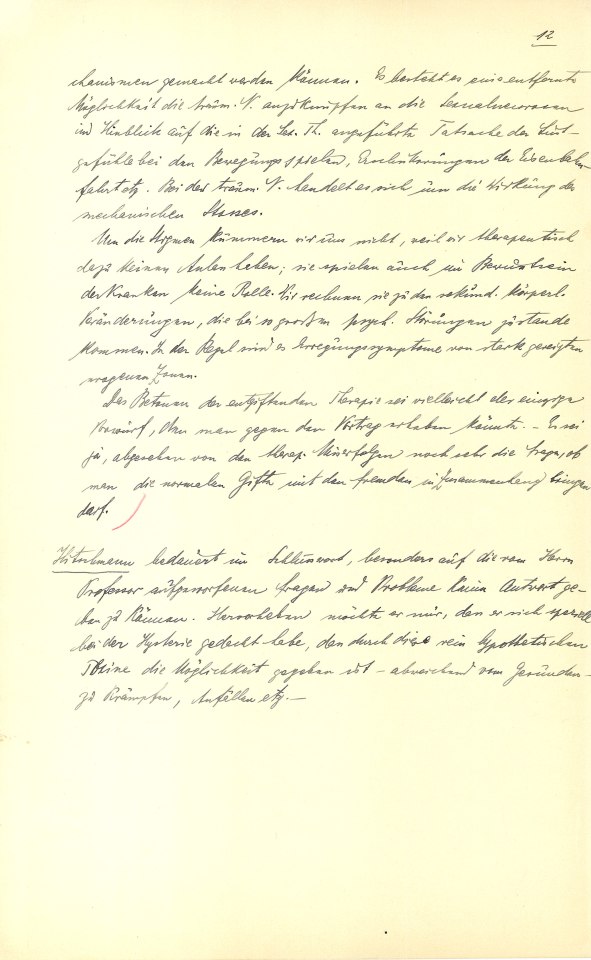 12
chanismen gemacht werden können. Es besteht es eine entfernte
Möglichkeit die traum. N. anzuknüpfen an die Sexualneurosen
im Hinblick auf die in der Sex. Th. angeführte Tatsache der Lust-
gefühle bei den Bewegungsspielen, Erschütterungen der Eisenbahn-
fahrt etz. Bei der traum. N. handelt es sich um die Wirkung des
mechanischen Stosses.
Um die Stigmen kümmern wir uns nicht, weil wir therapeutisch
dazu keinen Anlass haben; sie spielen auch im Bewusstsein
der Kranken keine Rolle. Wir rechnen sie zu den sekund. körperl.
Veränderungen, die bei so grossen psych. Störungen zustande
kommen. In der Regel sind es Erregungssymptome von stark gereizten
erogenen Zonen.
Das Betonen der entgiftenden Therapie sei vielleicht der einzige
Vorwurf, den man gegen den Vortrag erheben könnte. – Es sei
ja, abgesehen von den therap. Misserfolgen noch sehr die Frage, ob
man die normalen Gifte mit den fremden in Zusammenhang bringen
darf.
Hitschmann bedauert im Schlusswort, besonders auf die vom Herrn
Professor aufgeworfenen Fragen und Probleme keine Antwort ge-
ben zu können. Hervorheben möchte er nur, dass er sich speziell
bei der Hysterie gedacht habe, dass durch diese rein hypothetischen
Toxine die Möglichkeit gegeben ist – abweichend vom Gesunden –
zu Krämpfen, Anfällen etz. –